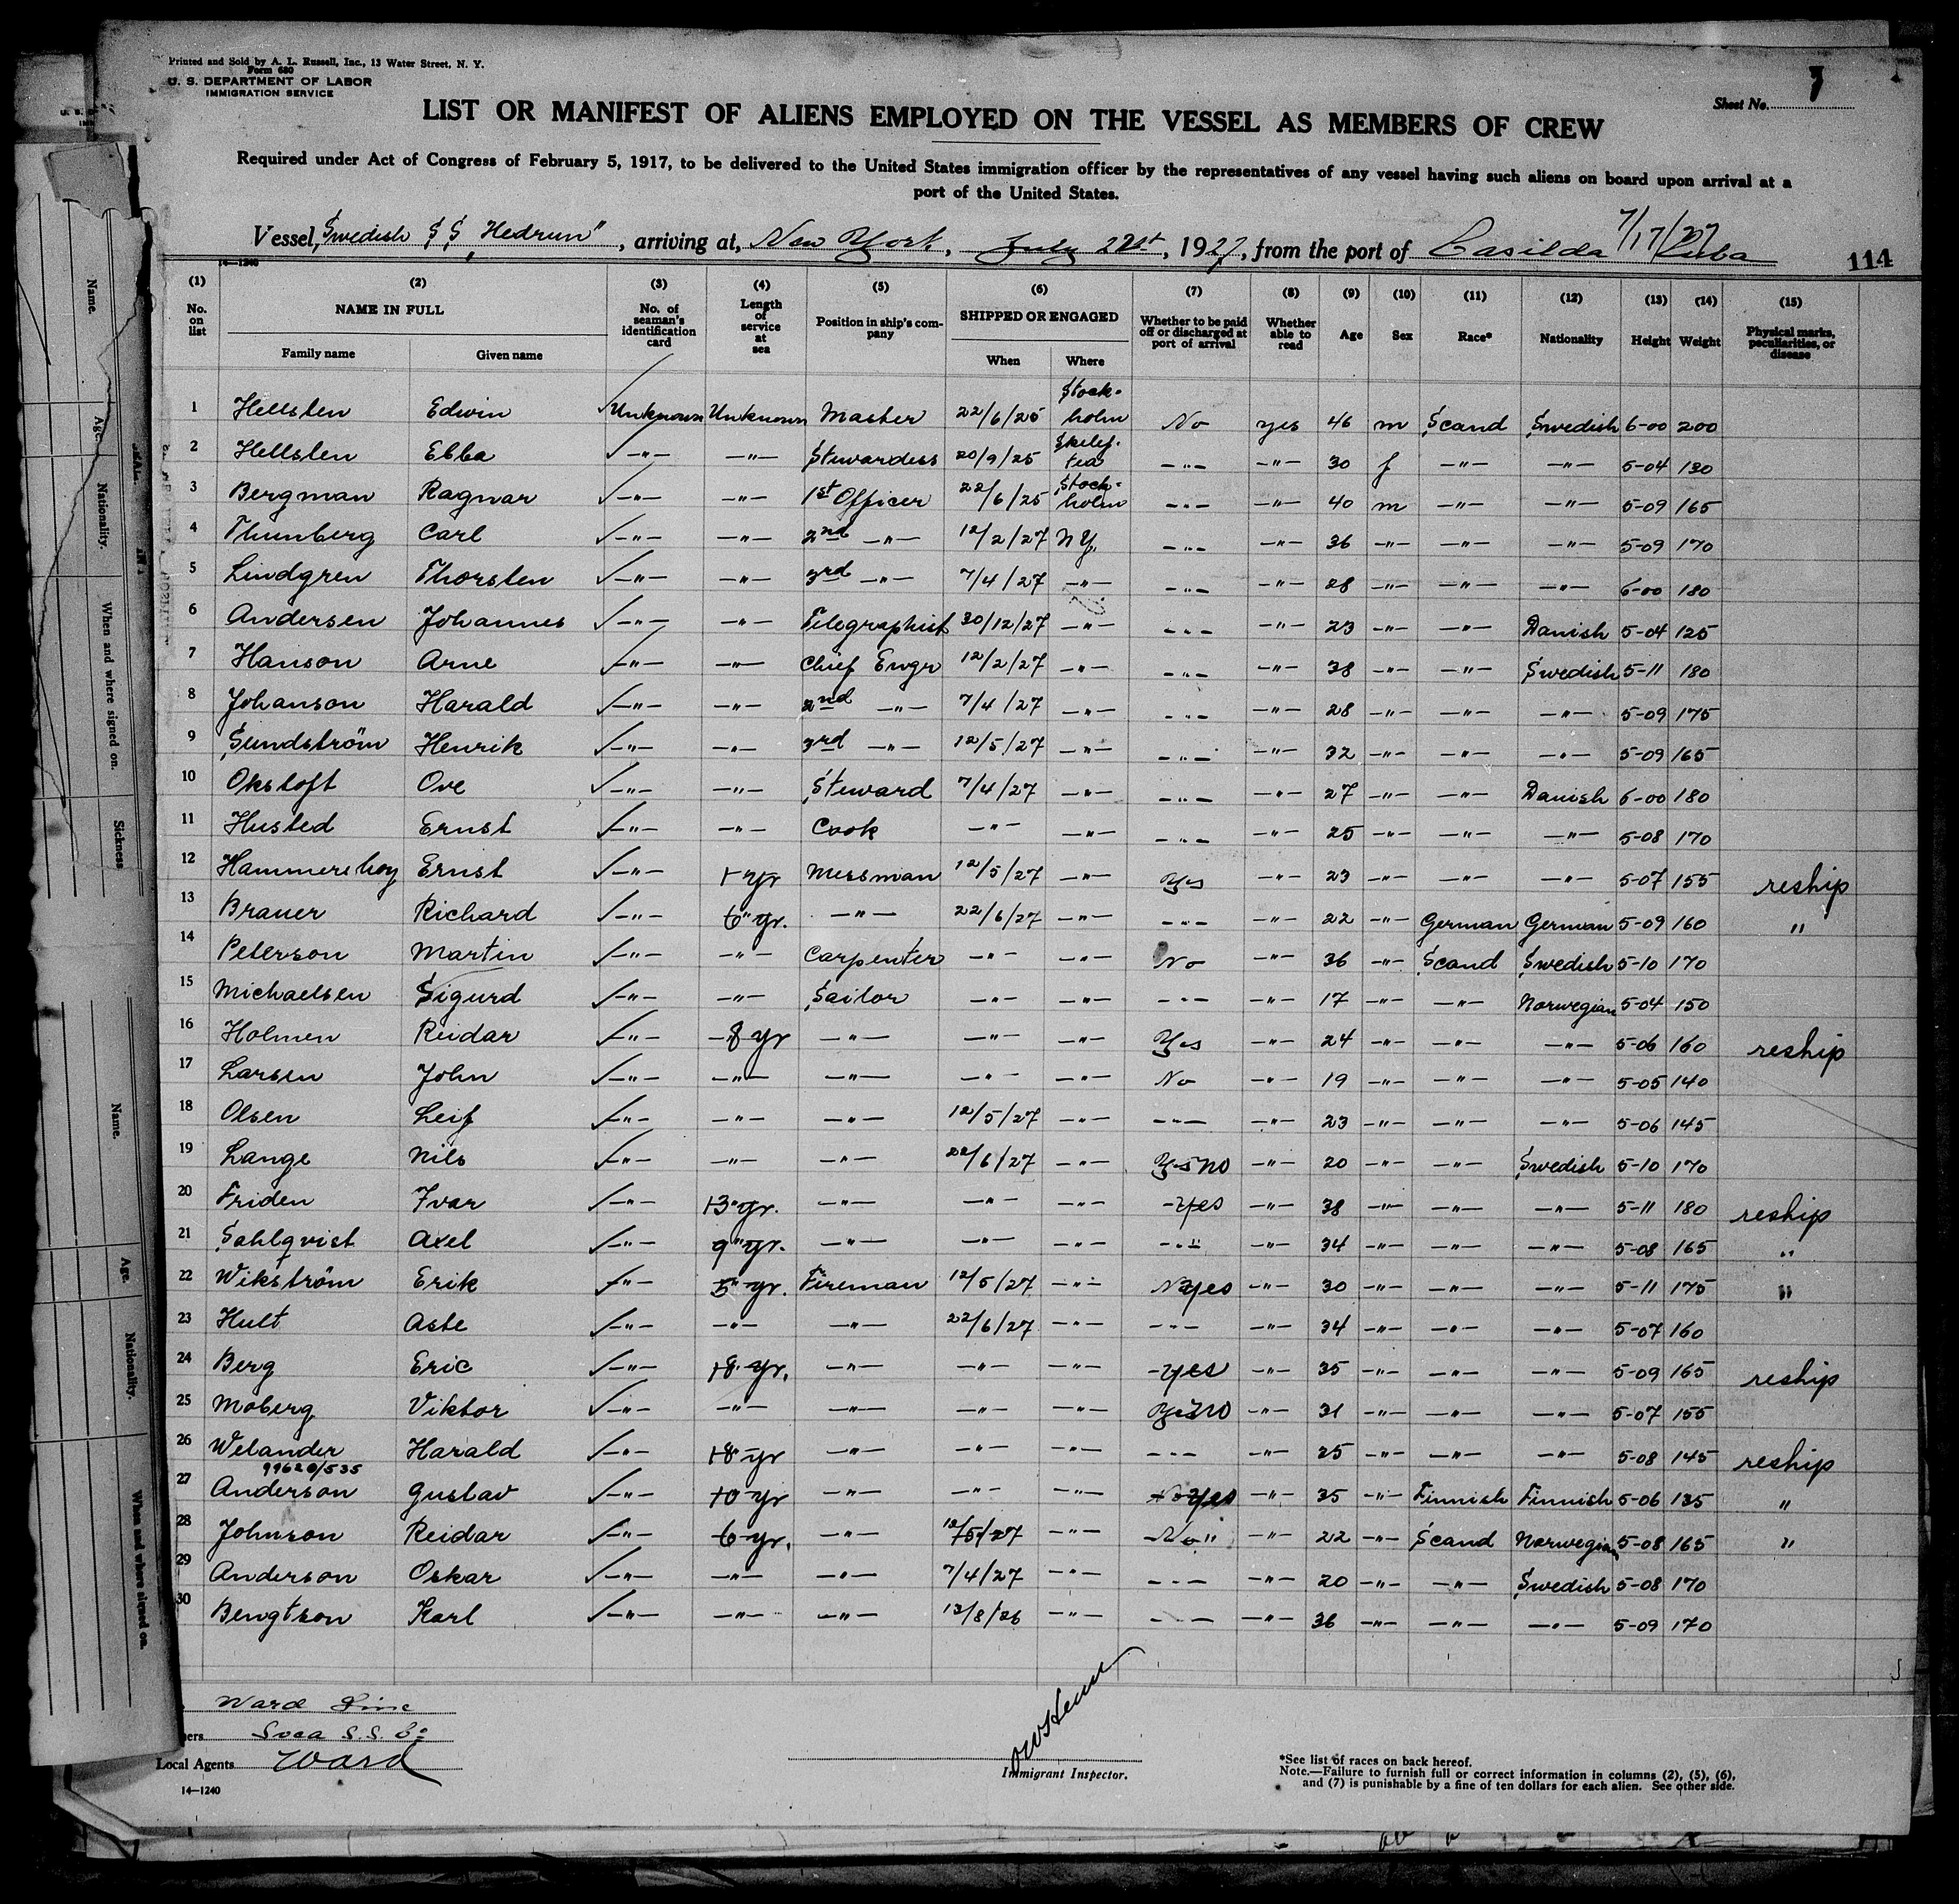 Printed and Sold by A. L. Russell, Inc., 13 Water Street, N. Y.
Form 680
U. S. DEPARTMENT OF LABOR
IMMIGRATION SERVICE
Sheet No. 7
LIST OR MANIFEST OF ALIENS EMPLOYED ON THE VESSEL AS MEMBERS OF CREW
Required under Act of Congress of February 5, 1917, to be delivered to the United States immigration officer by the representatives of any vessel having such aliens on board upon arrival at a
port of the United States.
Vessel, Swedish SS "Hedrun", arriving at, New York, July 22st, 1927, from the port of Casilda 7/17/27 Cuba
14—1240
114
(1) (2) (3) (4) (5) (6) (7) (8) (9) (10) (11) (12) (13) (14) (15)
No. on list NAME IN FULL Family name Given name No. of seaman's identification card Length of service at sea Position in ship's company SHIPPED OR ENGAGED When Where Whether to be paid off or discharged at port of arrival Whether able to read Age Sex Race* Nationality Height Weight Physical marks, peculiarities, or disease
1 Hellsten Edwin Unknown Unknown Master 22/6/25 Stock-holm No yes 46 m Scand Swedish 6-00 200
2 Hellsten Ebba —"— —"— Stewardess 20/9/25 Skelef-tea —"— —"— 30 f —"— —"— 5-04 130
3 Bergman Ragnar —"— —"— 1st Officer 22/6/25 Stock-holm —"— —"— 40 m —"— —"— 5-09 165
4 Thunberg Carl —"— —"— 2nd —"— 12/2/27 N.Y. —"— —"— 36 —"— —"— —"— 5-09 170
5 Lindgren Thorsten —"— —"— 3rd —"— 7/4/27 —"— —"— —"— 28 —"— —"— —"— 6-00 180
6 Andersen Johannes —"— —"— Telegraphist 30/12/27 —"— —"— —"— 23 —"— —"— Danish 5-04 125
7 Hanson Arne —"— —"— Chief Engr 12/2/27 —"— —"— —"— 38 —"— —"— Swedish 5-11 180
8 Johanson Harald —"— —"— 2nd —"— 7/4/27 —"— —"— —"— 28 —"— —"— —"— 5-09 175
9 Sundström Henrik —"— —"— 3rd —"— 12/5/27 —"— —"— —"— 32 —"— —"— —"— 5-09 165
10 Oksloft Ove —"— —"— Steward 7/4/27 —"— —"— —"— 27 —"— —"— Danish 6-00 180
11 Husted Ernst —"— —"— Cook —"— —"— —"— —"— 25 —"— —"— —"— 5-08 170
12 Hammershoy Ernst —"— 1 yr Messman 12/5/27 —"— Yes —"— 23 —"— —"— —"— 5-07 155 reship
13 Brauer Richard —"— 6 yr. —"— 22/6/27 —"— —"— —"— 22 —"— German German 5-09 160 "
14 Peterson Martin —"— —"— Carpenter —"— —"— No —"— 36 —"— Scand Swedish 5-10 170
15 Michaelsen Sigurd —"— —"— Sailor —"— —"— —"— —"— 17 —"— —"— Norwegian 5-04 150
16 Holmen Reidar —"— 8 yr —"— —"— —"— Yes —"— 24 —"— —"— —"— 5-06 160 reship
17 Larsen John —"— —"— —"— —"— —"— No —"— 19 —"— —"— —"— 5-05 140
18 Olsen Leif —"— —"— —"— 12/5/27 —"— —"— —"— 23 —"— —"— —"— 5-06 145
19 Lange Nils —"— —"— —"— 22/6/27 —"— Yes no —"— 20 —"— —"— Swedish 5-10 170
20 Friden Ivar —"— 13 yr. —"— —"— —"— yes —"— 38 —"— —"— —"— 5-11 180 reship
21 Sahlqvist Axel —"— 9 yr. —"— —"— —"— —"— —"— 34 —"— —"— —"— 5-08 165 "
22 Wikström Erik —"— 5 yr. Fireman 12/5/27 —"— No yes —"— 30 —"— —"— —"— 5-11 175 "
23 Hult Aste —"— —"— —"— 22/6/27 —"— —"— —"— 34 —"— —"— —"— 5-07 160
24 Berg Eric —"— 18 yr. —"— —"— —"— yes —"— 35 —"— —"— —"— 5-09 165 reship
25 Moberg Viktor —"— —"— —"— —"— —"— Yes no —"— 31 —"— —"— —"— 5-07 155
26 Welander Harald —"— 18 yr —"— —"— —"— —"— —"— 25 —"— —"— —"— 5-08 145 reship
99620/535
27 Anderson Gustav —"— 10 yr —"— —"— —"— yes —"— 35 —"— Finnish Finnish 5-06 135 "
28 Johnson Reidar —"— 6 yr. —"— 12/5/27 —"— No " —"— 22 —"— Scand Norwegian 5-08 165 "
29 Anderson Oskar —"— —"— —"— 7/4/27 —"— —"— —"— 20 —"— —"— Swedish 5-08 170
30 Bengtson Karl —"— —"— —"— 13/8/26 —"— —"— —"— 36 —"— —"— —"— 5-09 170
Ward Line
Svea S.S. Co
Local Agents Ward
Immigrant Inspector.
14—1240
*See list of races on back hereof.
Note.—Failure to furnish full or correct information in columns (2), (5), (6),
and (7) is punishable by a fine of ten dollars for each alien. See other side.
Name.
Age.
Nationality.
When and where signed on.
Sickness
Name.
Age.
Nationality.
When and where signed on.